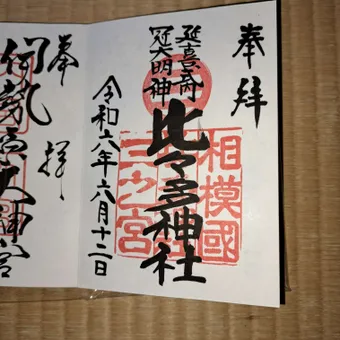 奉拝
延喜
冠大明神
比々多神社
相模國
三之宮
令和六年六月十二日
奉拝
伊勢原大神宮